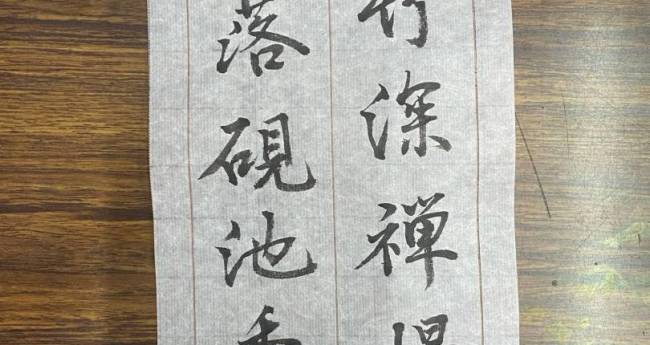 竹深禅
落硯池